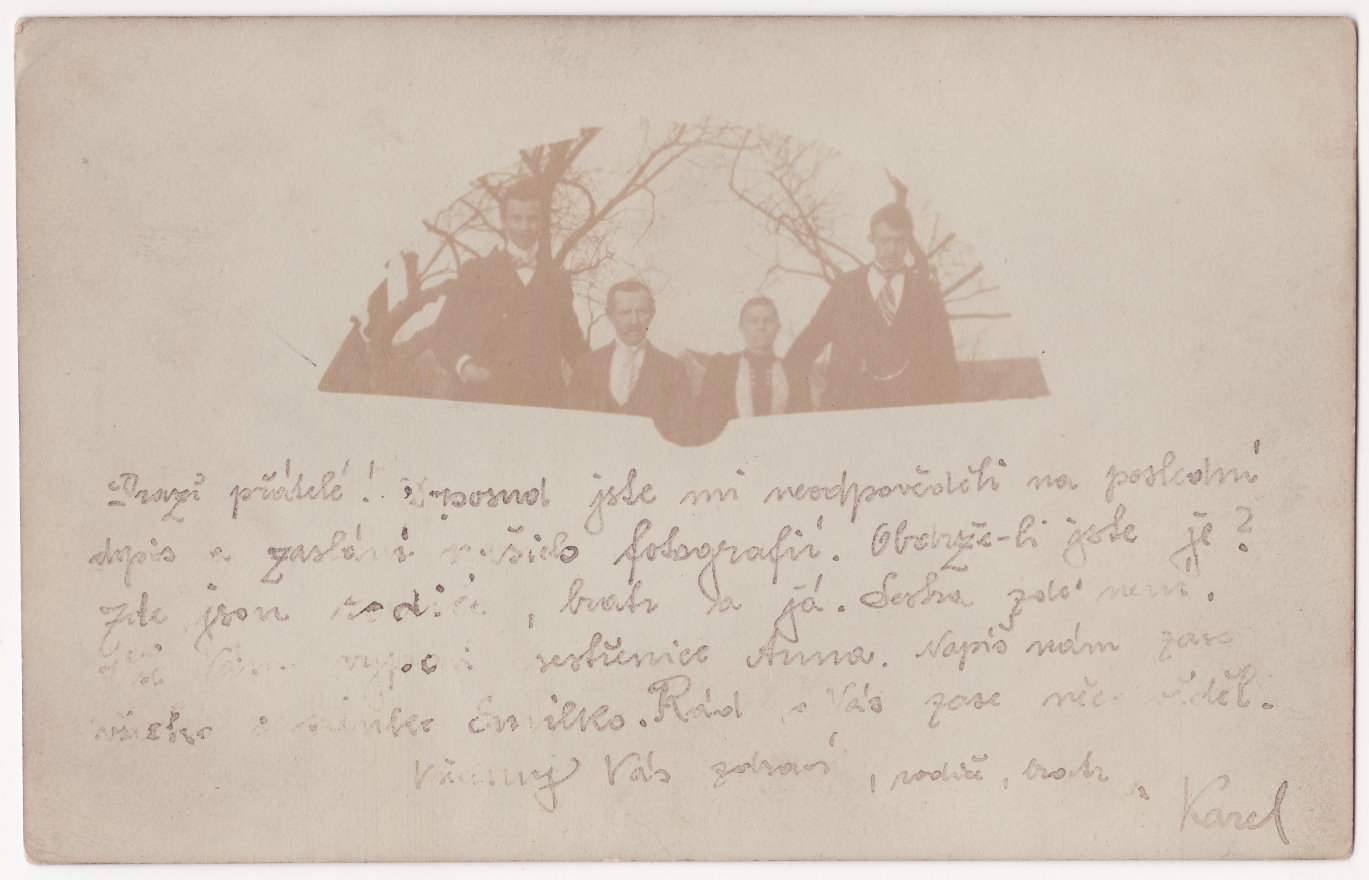 Drazí přátelé! Doposud jste mi neodpověděli na poslední
dopis a zaslání našich fotografií. Obdrže-li jste je?
Zde jsou rodiče, bratr a já. Sestra zde není.
Vám sestřenice Anna. Napiš nám zase
všecko Emilko. Rád Vás zase něco věděl.
Všechny Vás zdraví, rodiče, bratr a
Karel